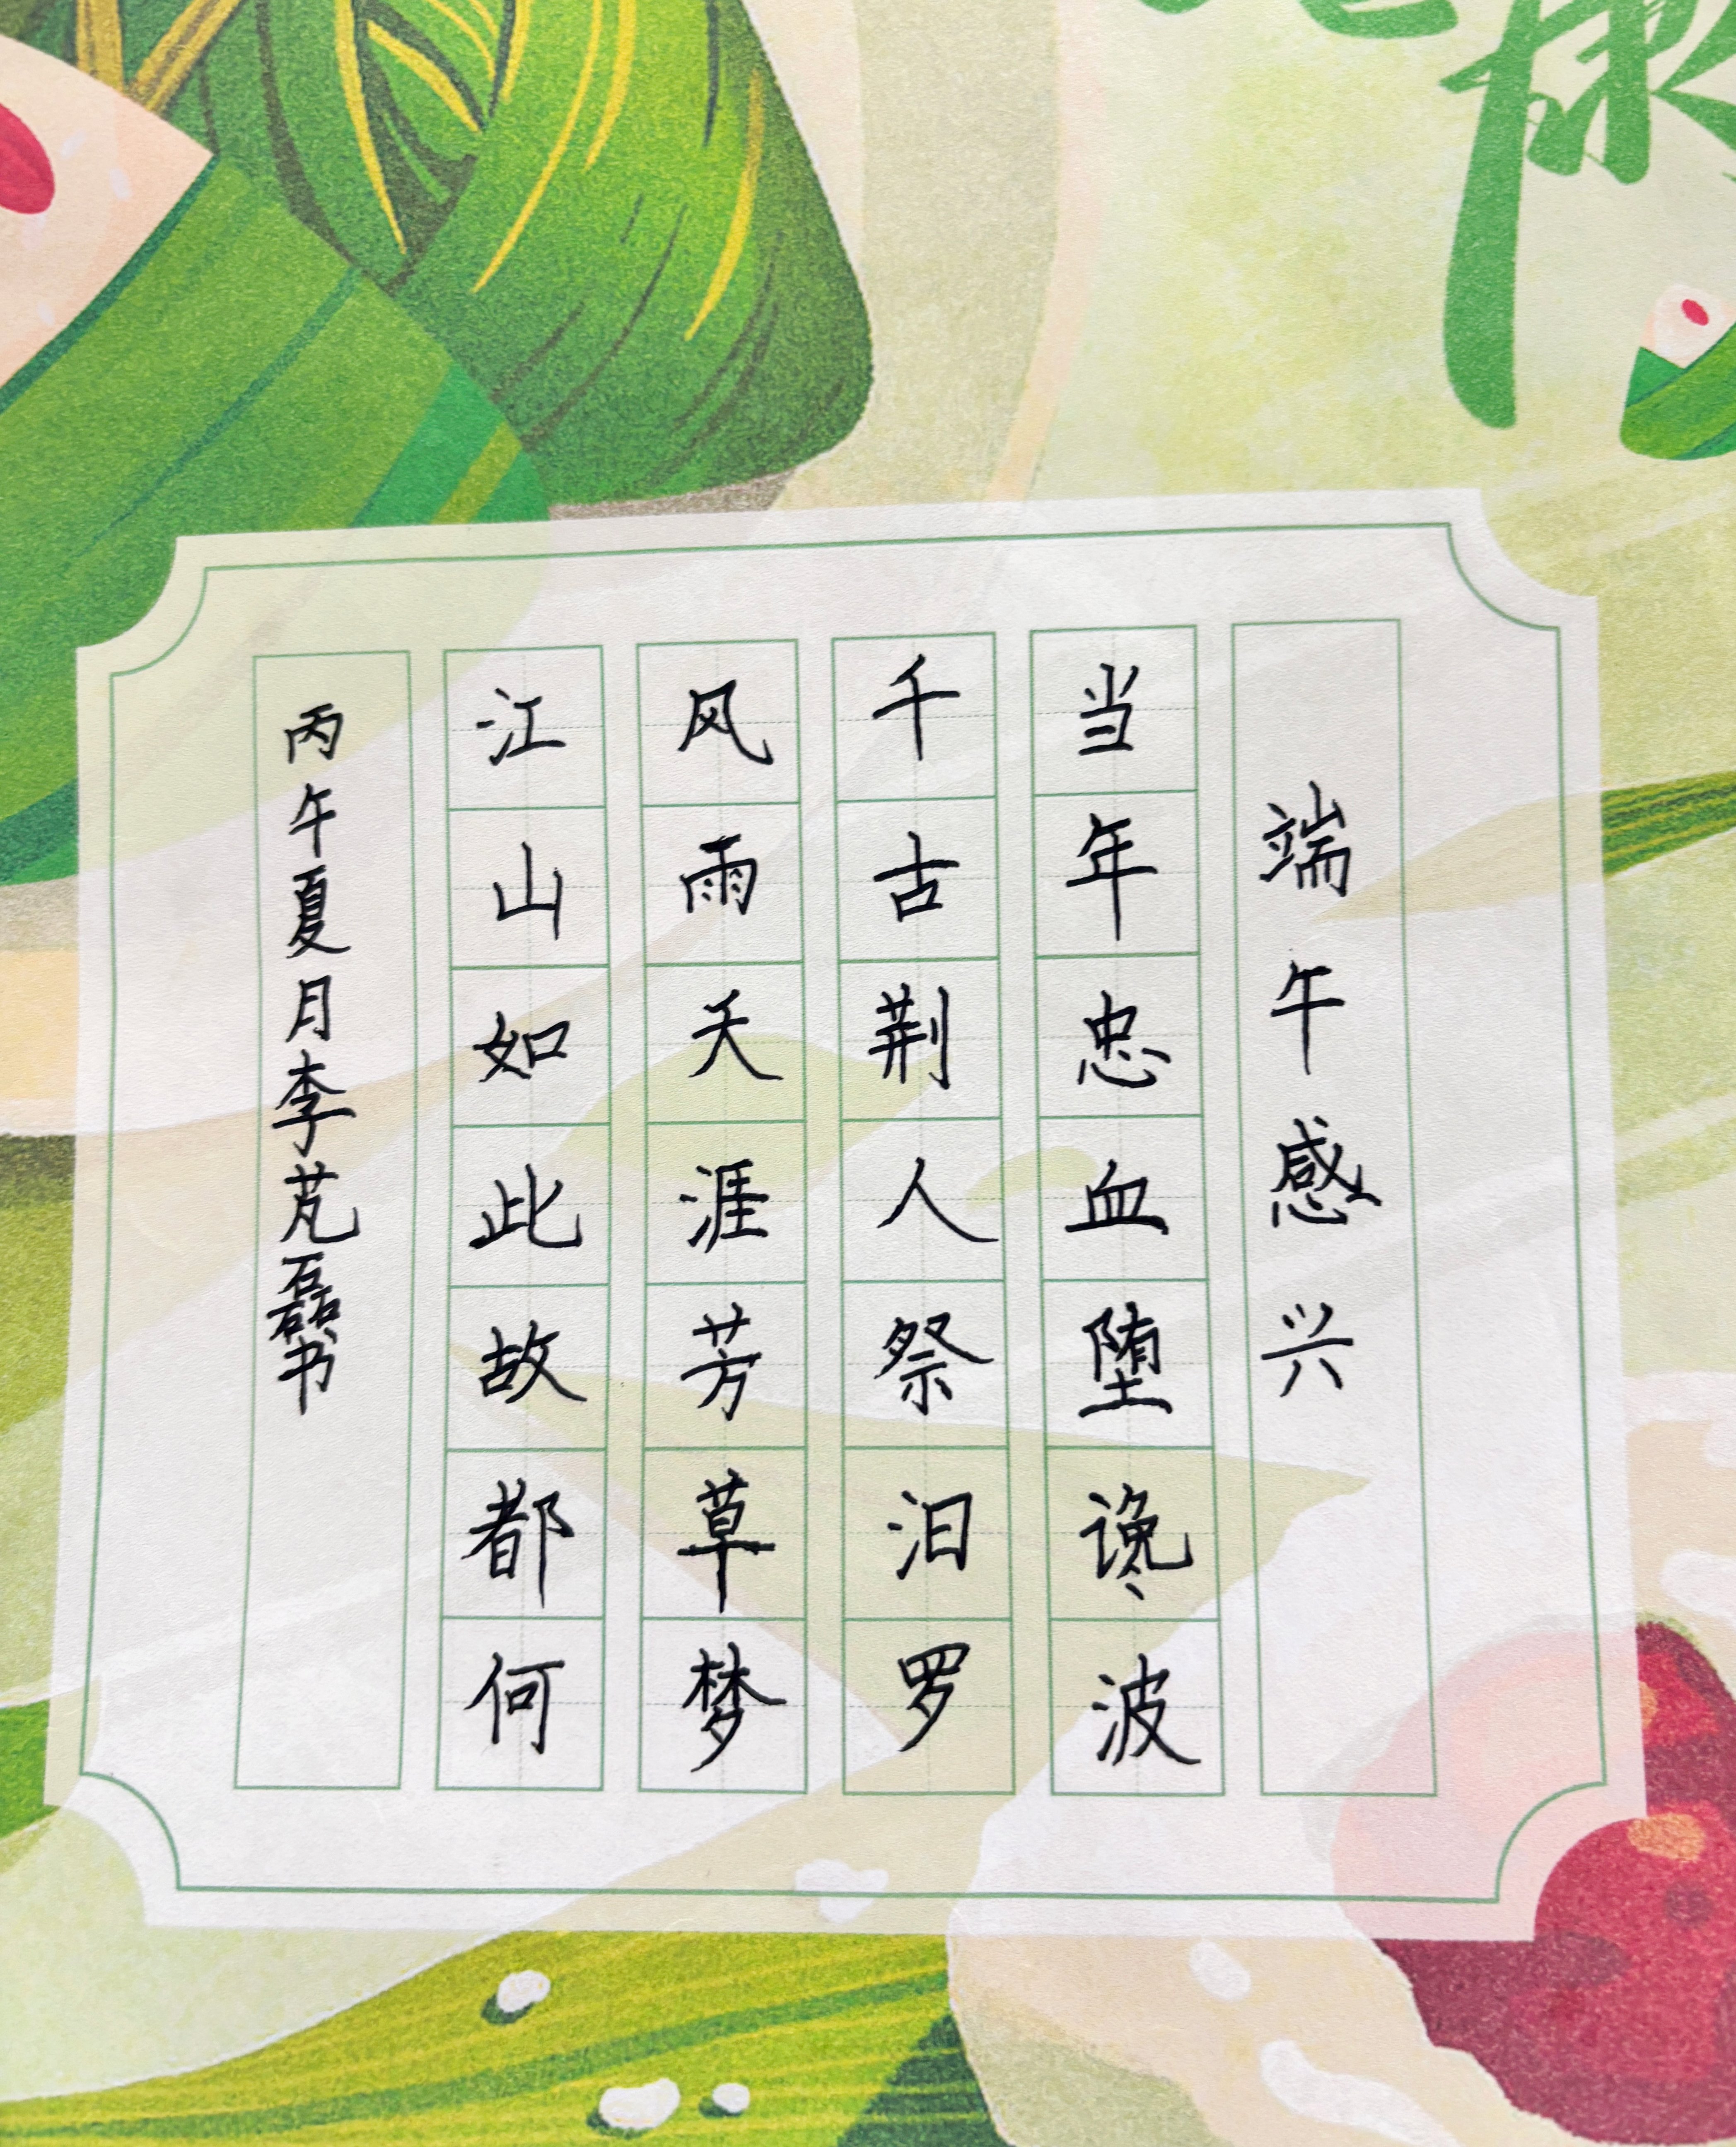 康
端午感兴
当年忠血堕谗波
千古荆人祭汨罗
风雨天涯芳草梦
江山如此故都何
丙午夏月李芃磊书